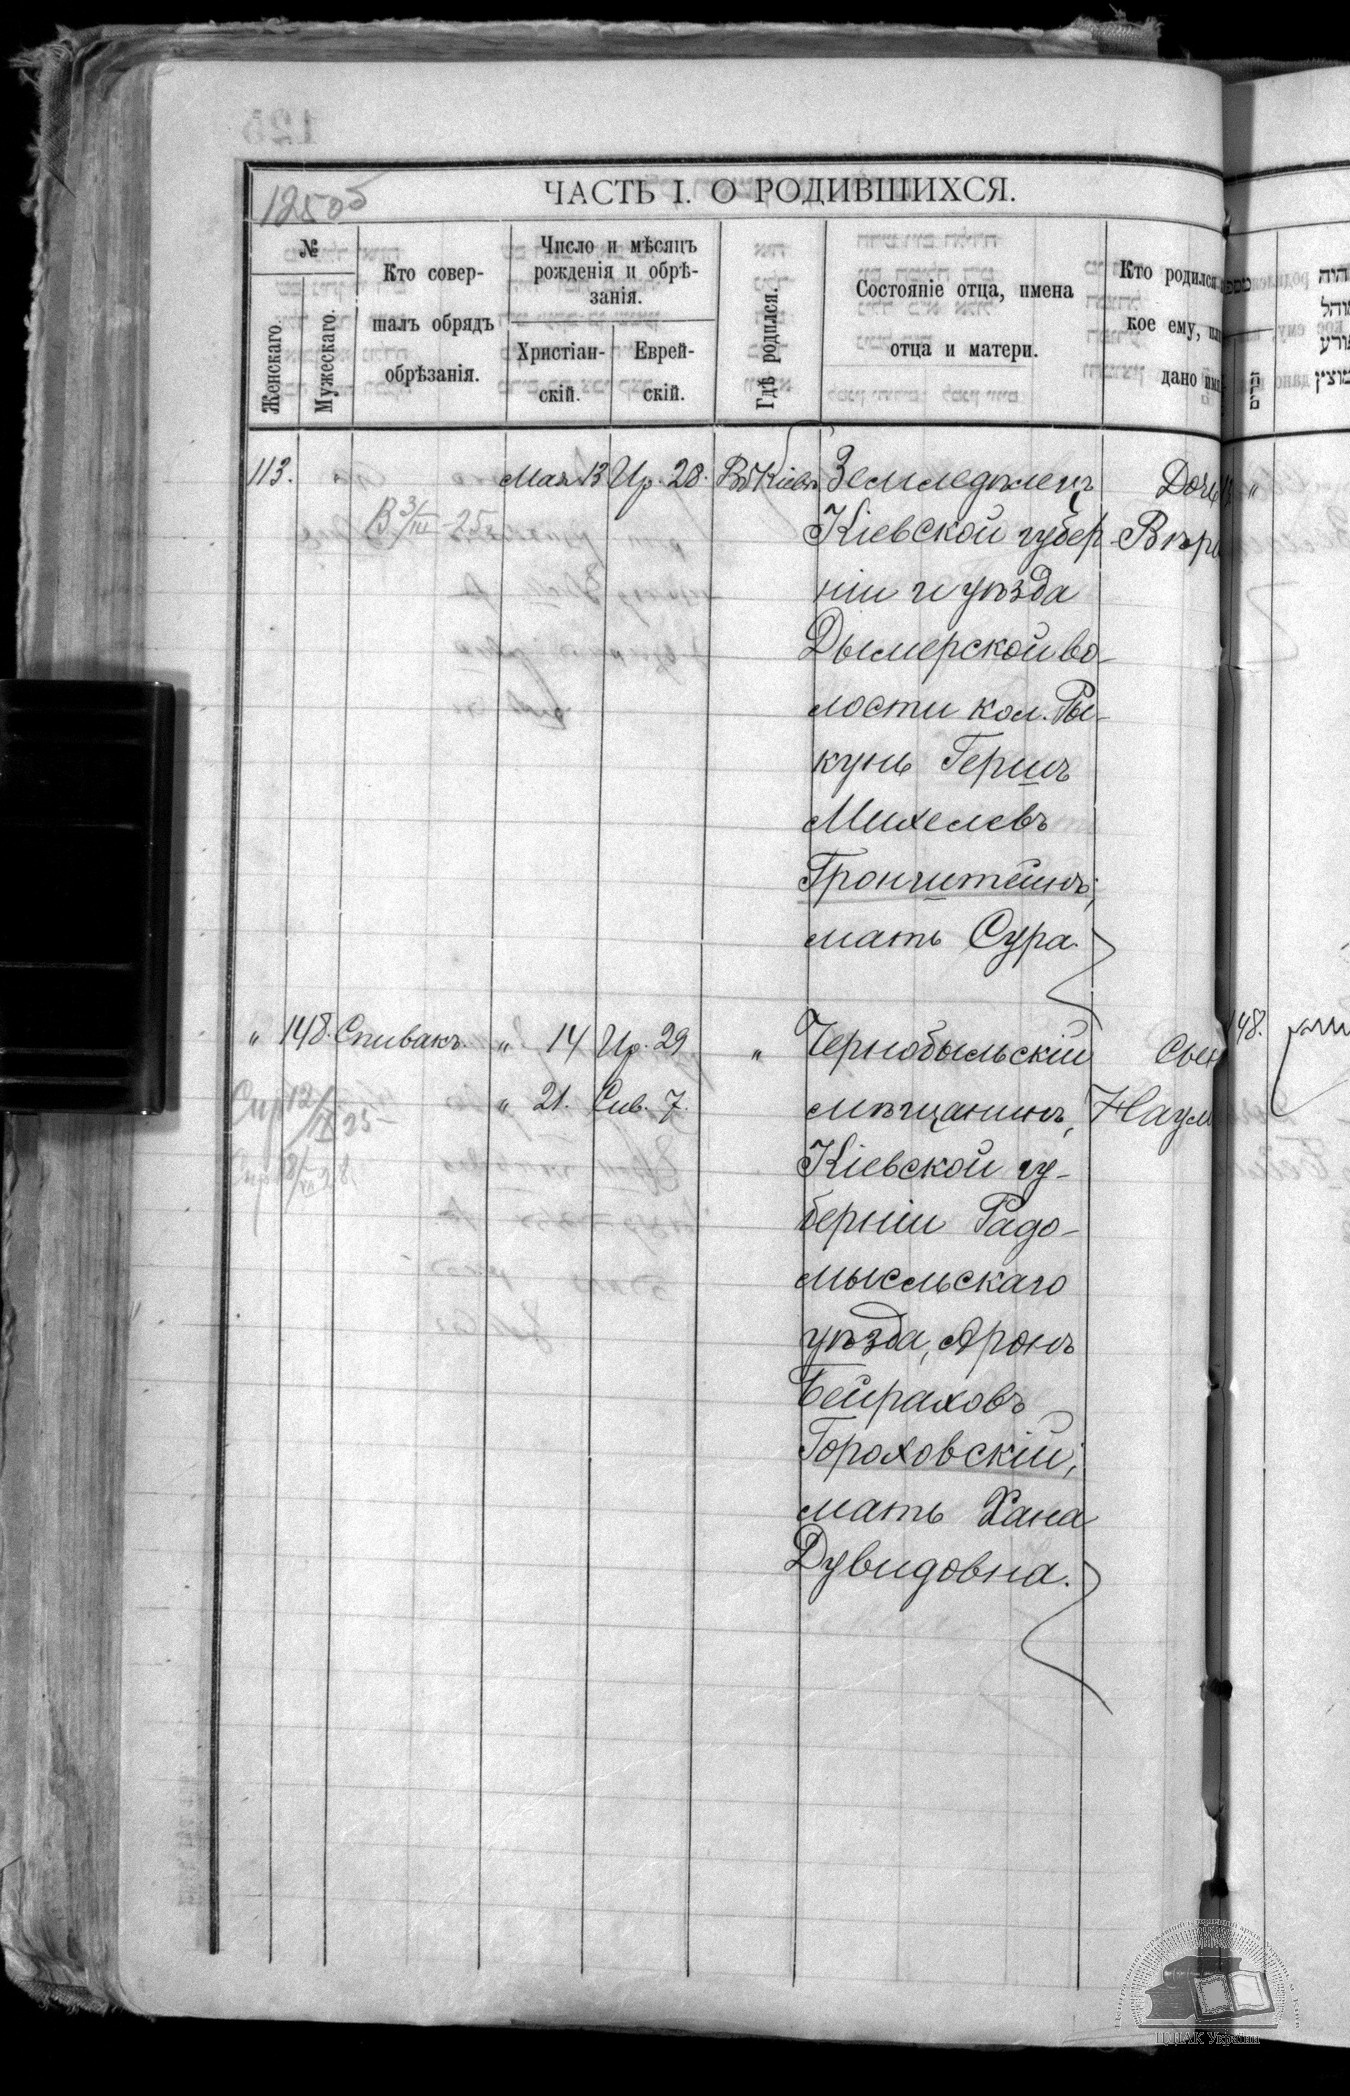 125об
ЧАСТЬ I. О РОДИВШИХСЯ.
№
Женскаго.
Мужескаго.
Кто совер-
шалъ обрядъ
обрѣзанія.
Число и мѣсяцъ
рожденія и обрѣ-
занія.
Христіан-
скій.
Еврей-
скій.
Гдѣ родился.
Состояніе отца, имена
отца и матери.
Кто родился
кое ему, или
дано имя
113.
Мая 13
Ир. 28.
Въ Кіевѣ
Земледѣлецъ
Кіевской губер-
ніи и уѣзда
Дымерской во-
лости кол. Ры-
кунь Гершъ
Михелевъ
Гронштейнъ;
мать Сура.
Дочь
Вѣра
В 3/III-25г
" 148. Спивакъ.
" 14 Ир. 29
" 21. Сив. 7.
"
Чернобыльскій
мѣщанинъ,
Кіевской гу-
берніи Радо-
мысльскаго
уѣзда, Аронъ
Бейраховъ
Гороховскій;
мать Хана
Дувидовна.
Сынъ
Наум
148.
ЦДІАК України